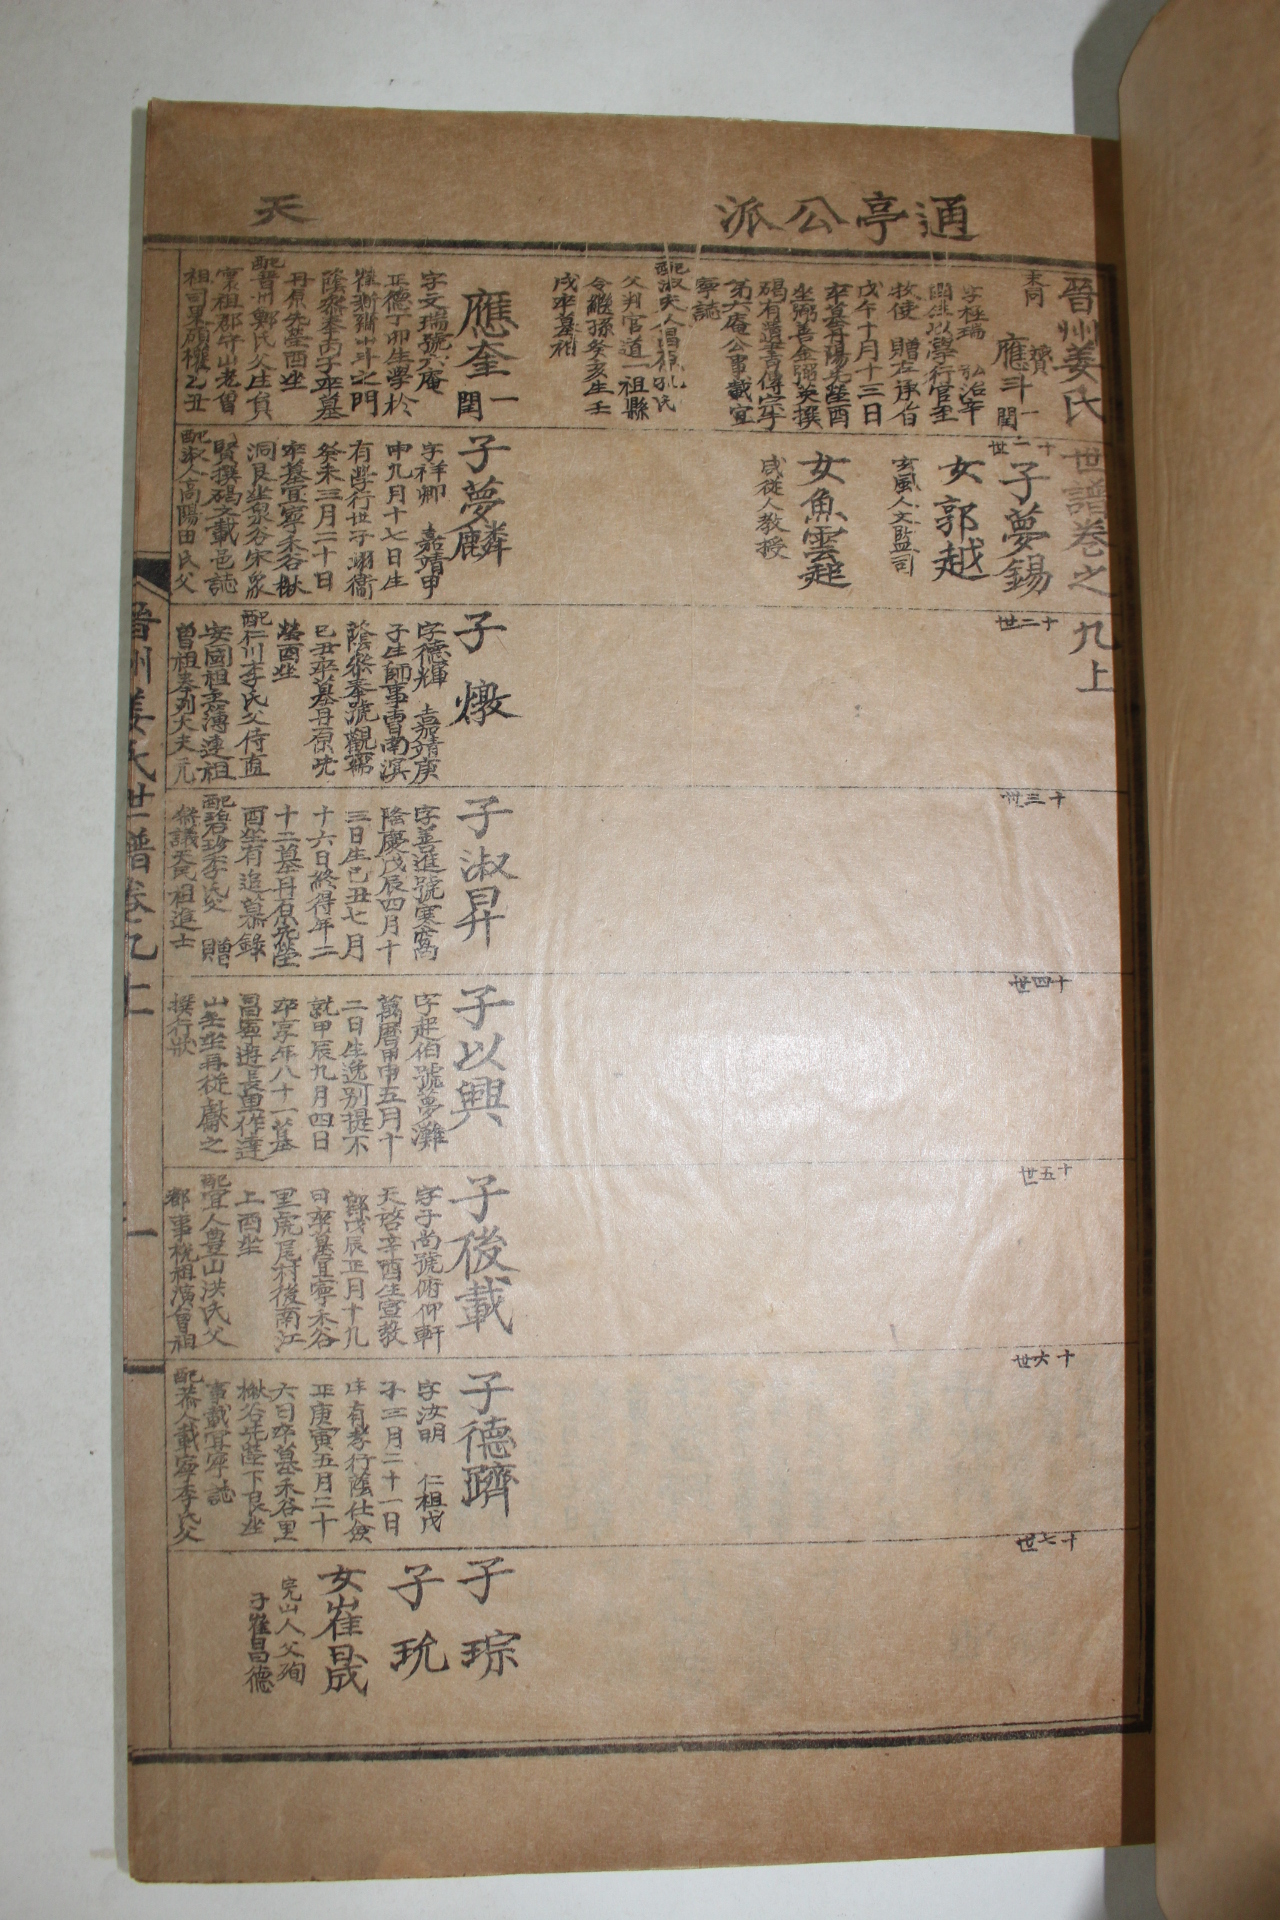 通亭公派
天
晉州姜氏世譜卷之九上
應斗
一閏
字極瑞 弘治辛
以學行官至
牧使 贈左承旨
戊午十月十三日
卒墓丹陽
坐弼善金弼英撰
碣有遺書傳
第六庵公事載宜
寧誌
父判官道一祖縣
令繼孫癸亥生壬
戌卒墓祔
應奎
一閏
字文瑞號六庵
正德丁卯生學於
之門
蔭參奉丙子卒墓
丹原先塋酉坐
配晉州鄭氏父生員
寰祖郡守山老曾
祖司果碩權乙丑
十二世
子夢錫
女郭越
玄風人文監司
女魚雲
咸從人教授
子夢麟
字祥卿 嘉靖甲
申九月十七日生
有學行世子翊衛
癸未三月二十日
卒墓宜寧禾谷楸
洞艮坐泉谷宋象
賢撰碣文載邑誌
配淑人高陽田氏父
十二世
子燉
字德輝 嘉靖庚
子生師事曺南溟
蔭參奉號觀
己丑卒墓丹原先
塋酉坐
配仁川李氏父侍直
安國祖主薄連祖
曾祖奉列大夫元
十三世
子淑昇
字善進號寒窩
隆慶戊辰四月十
三日生己丑七月
十六日終得年二
十二墓丹原先塋
酉坐有追慕錄
配碧珍李氏父 贈
參議天民祖進士
十四世
子以興
字起伯號夢灘
萬曆甲申五月十
二日生逸別提不
就甲辰九月四日
卒享年八十一墓
昌寧遊長里作達
山 坐再從獻之
撰行狀
十五世
子後載
字子尚號俯仰軒
天啓辛酉生宣教
郞戊辰正月十九
日卒墓宜寧禾谷
里虎尾村後南江
上酉坐
配宜人豊山洪氏父
都事 祖演曾祖
十六世
子德躋
字汝明 仁祖戊
子三月二十一日
生有孝行蔭仕僉
正庚寅五月二十
六日卒墓禾谷里
楸谷先塋下艮坐
事載宜寧誌
配恭人載寧李氏父
十七世
子琮
子玧
女崔晟
完山人父
子崔昌德
晉州姜氏世譜卷九上
一